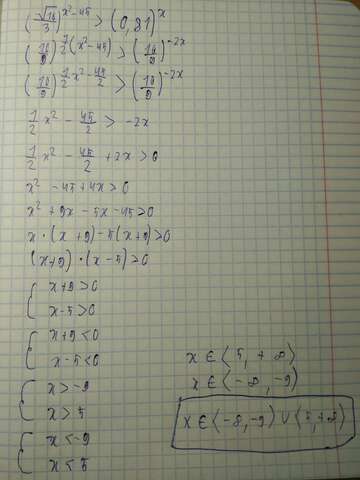 (√10/3)^(x²-45) > (0,81)^x
(10/9)^(1/2(x²-45)) > (10/9)^(-2x)
(10/9)^(1/2x²-45/2) > (10/9)^(-2x)
1/2x² - 45/2 > -2x
1/2x² - 45/2 + 2x > 0
x² - 45 + 4x > 0
x² + 9x - 5x - 45 > 0
x · (x + 9) - 5(x + 9) > 0
(x + 9) · (x - 5) > 0
{ x + 9 > 0
x - 5 > 0
{ x + 9 < 0
x - 5 < 0
{ x > -9
x > 5
{ x < -9
x < 5
x ∈ ⟨5, + ∞⟩
x ∈ ⟨-∞, -9⟩
x ∈ ⟨-∞, -9⟩ ∪ ⟨5, +∞⟩